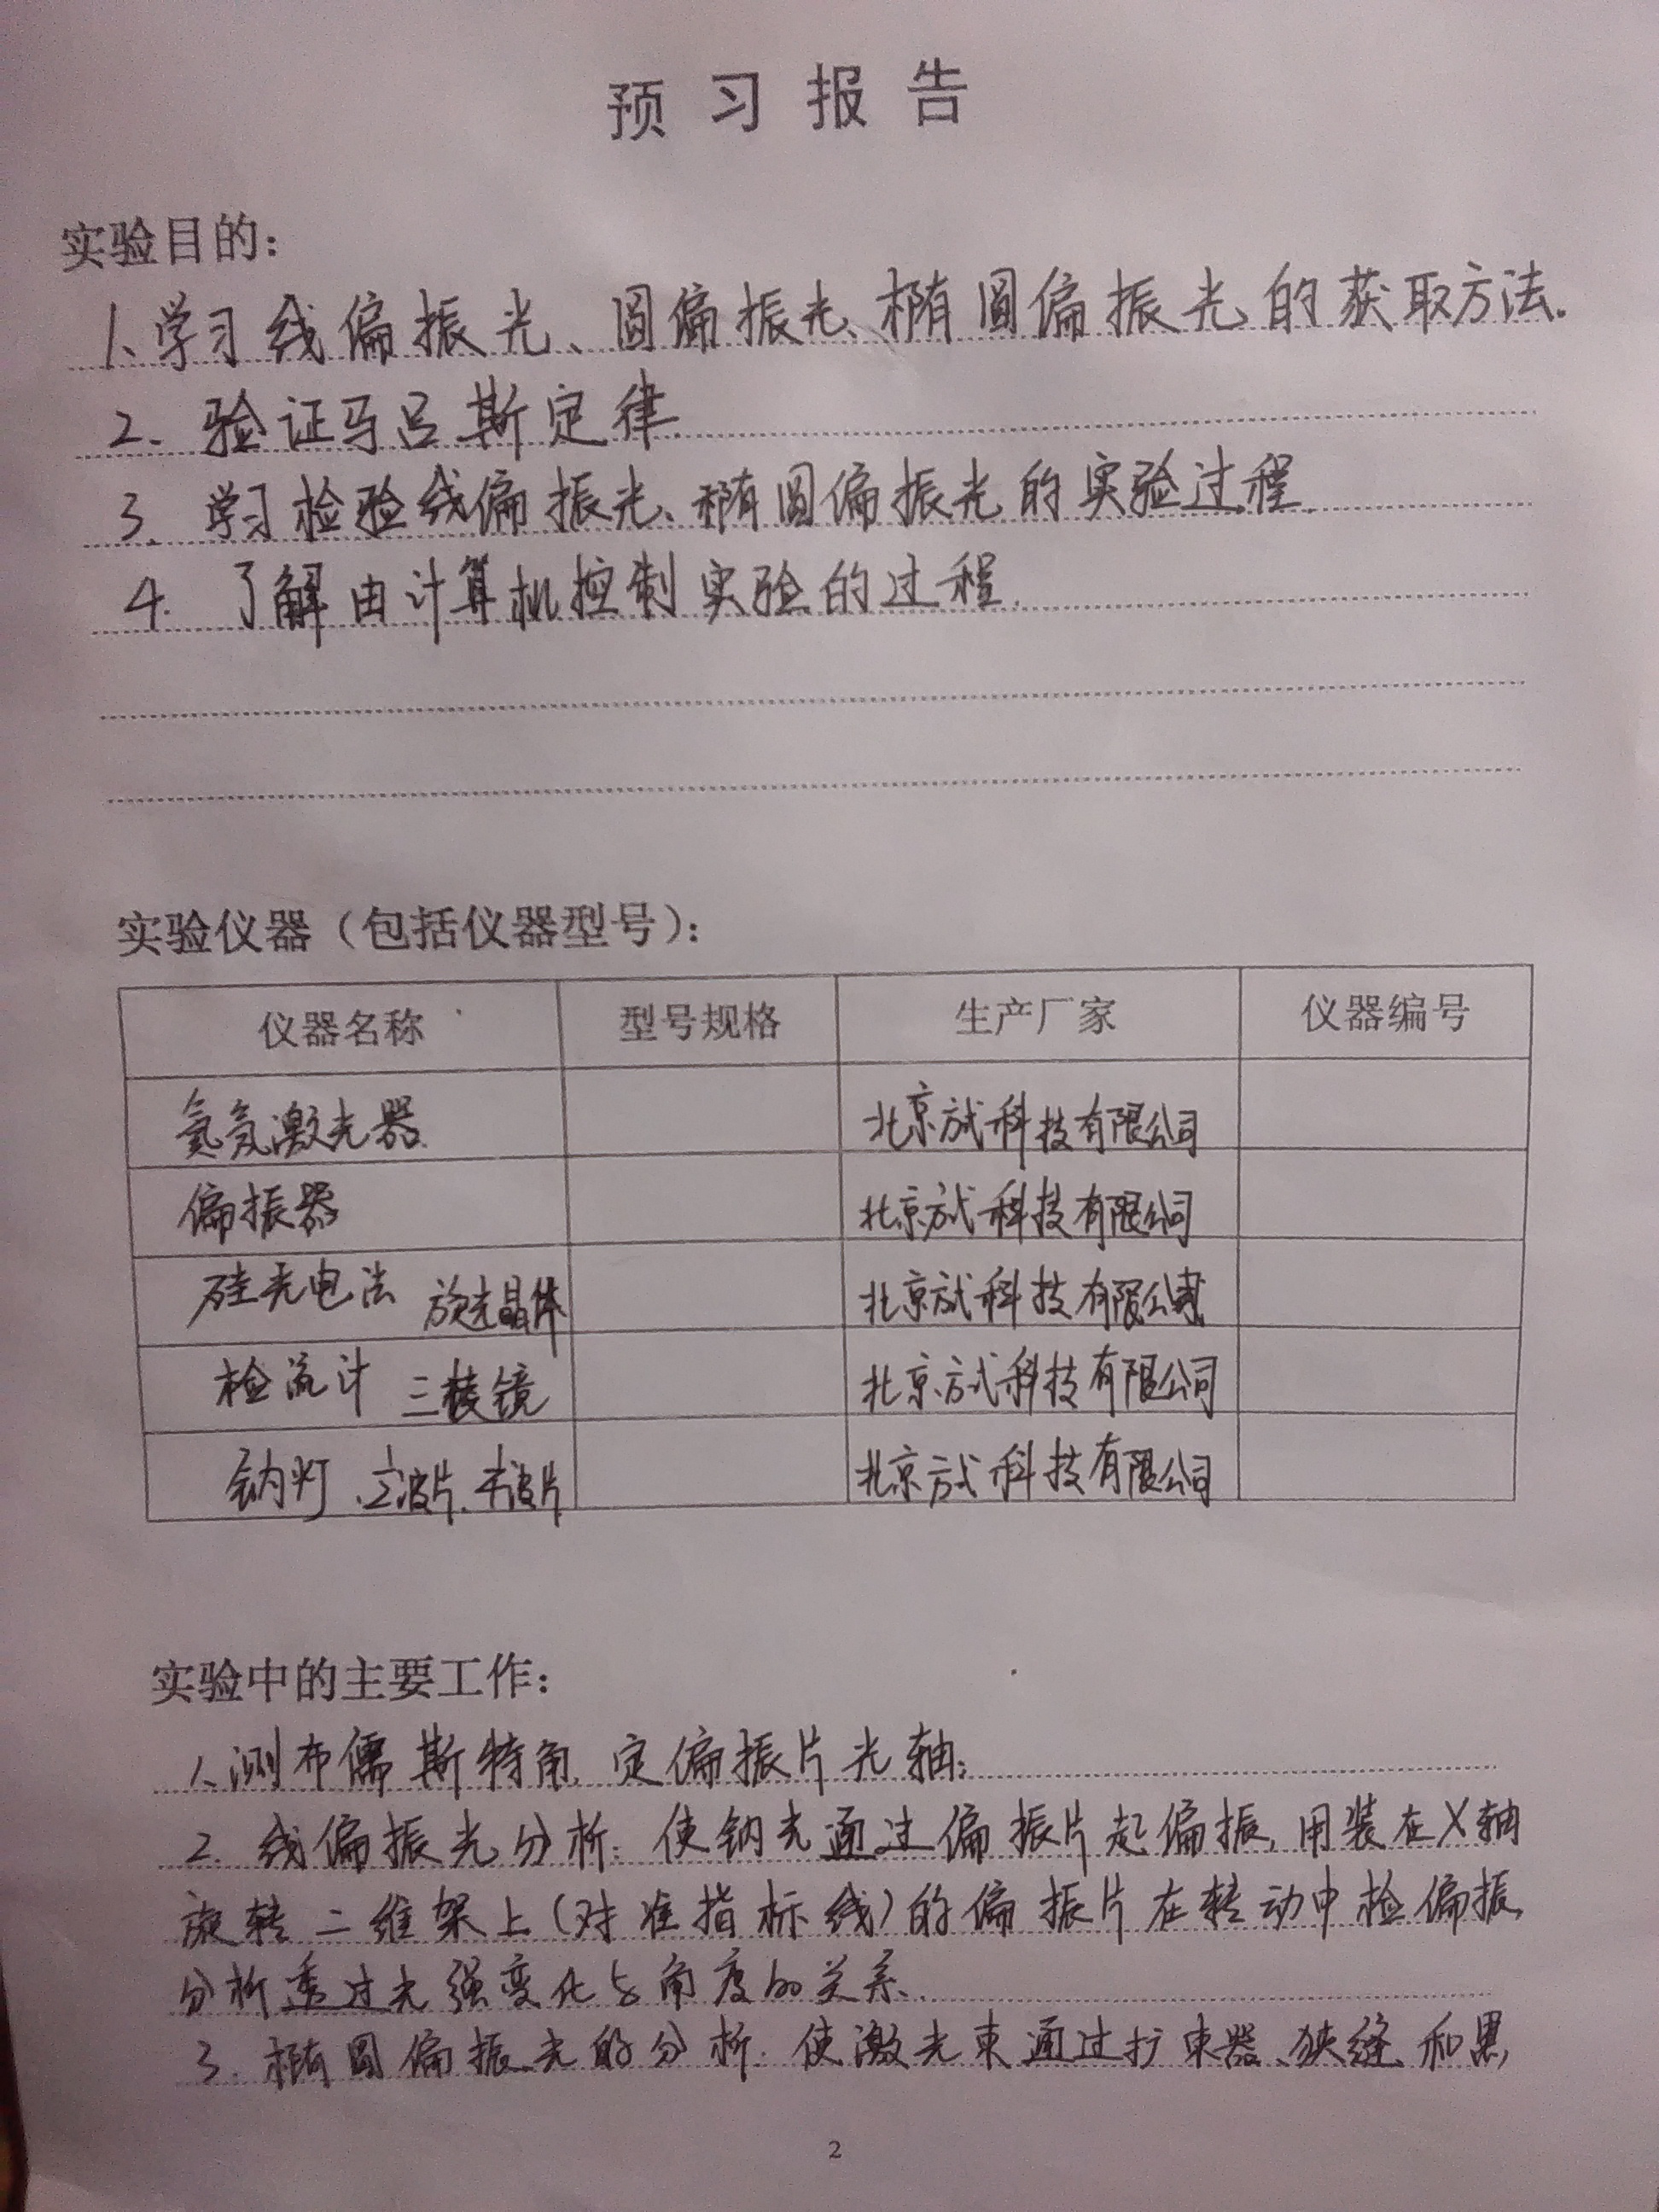 预习报告
实验目的：
1、学习线偏振光、圆偏振光、椭圆偏振光的获取方法.
2、验证马吕斯定律.
3、学习检验线偏振光、椭圆偏振光的实验过程.
4. 了解由计算机控制实验的过程.
实验仪器（包括仪器型号）：
仪器名称 型号规格 生产厂家 仪器编号
氦氖激光器 北京方式科技有限公司
偏振器 北京方式科技有限公司
硅光电法 旋光晶体 北京方式科技有限公司
检流计 三棱镜 北京方式科技有限公司
钠灯、½波片、¼波片 北京方式科技有限公司
实验中的主要工作：
1、测布儒斯特角，定偏振片光轴；
2. 线偏振光分析：使钠光通过偏振片起偏振，用装在X轴
旋转二维架上（对准指标线）的偏振片在转动中检偏振，
分析透过光强变化与角度的关系.
3. 椭圆偏振光的分析：使激光束通过扩束器、狭缝和黑
2